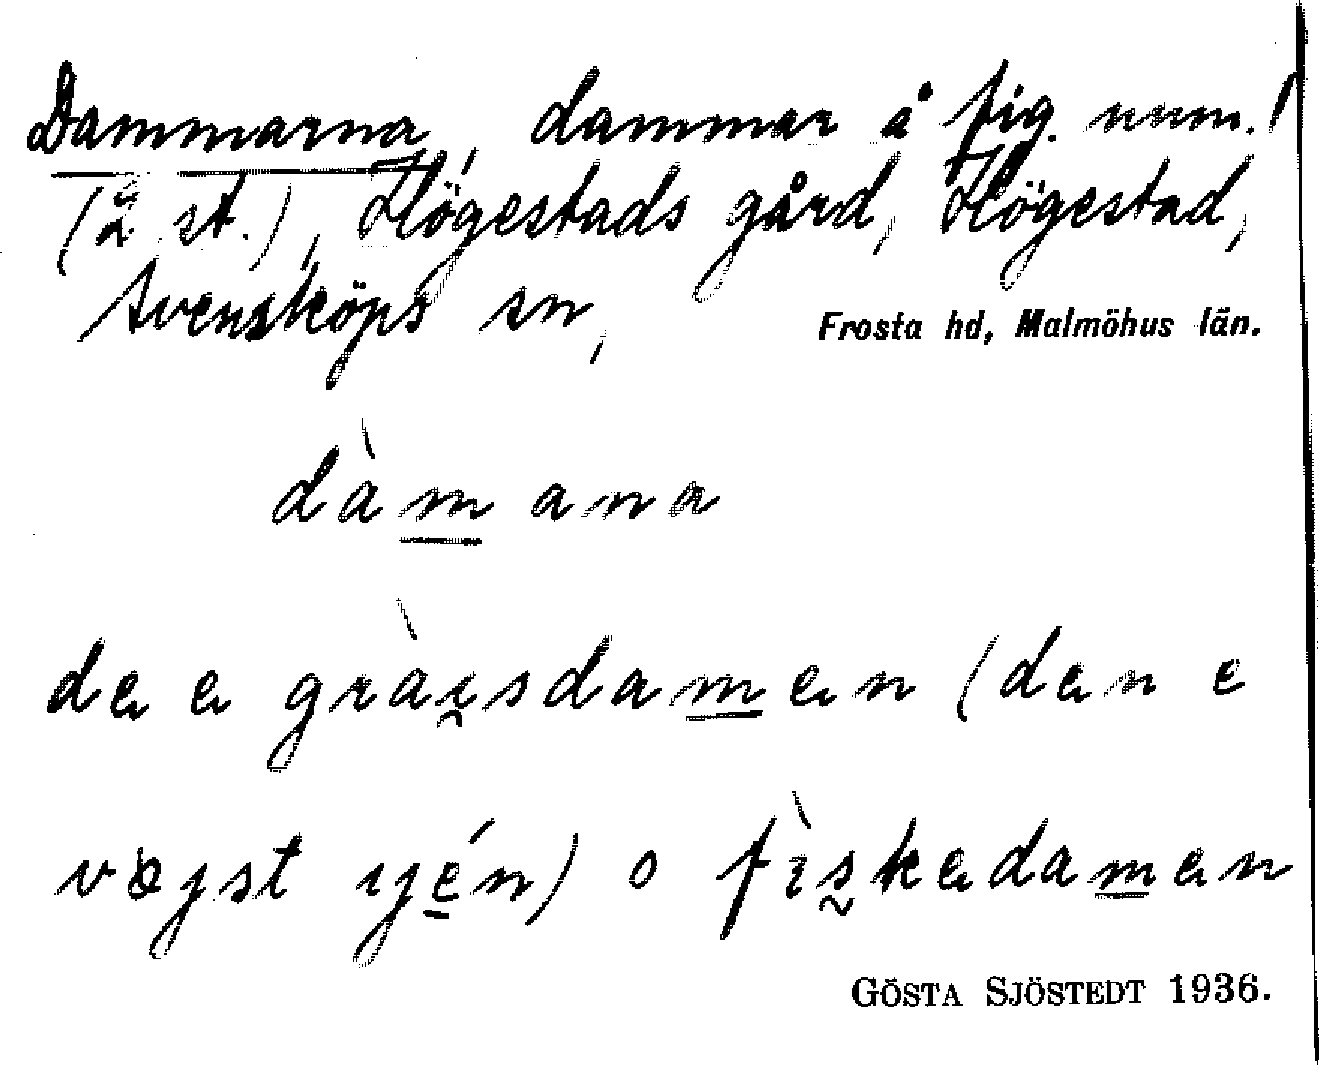 Dammarna, dammar å fig. num.!
(2 st.), Högestads gård, Högestad,
Svensköps sn,
Frosta hd, Malmöhus län.
dàmana
de e gràisdamen (den e
vøjst ijén) o fìskedamen
GÖSTA SJÖSTEDT 1936.